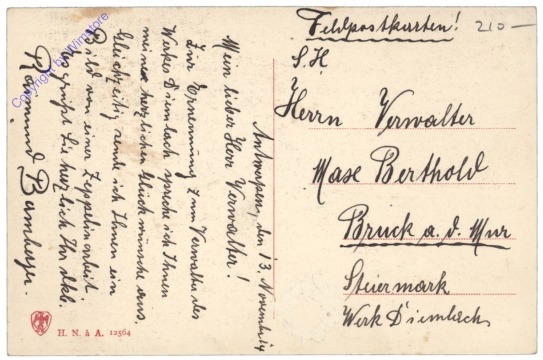 Feldpostkarten!
210 —
S.H
Herrn Verwalter
Mase Berthold
Bruck a. d. Mur
Steiermark
Werk Diemlach
Antwerpen, den 13. November 14
Mein lieber Herr Verwalter!
Zur Ernennung zum Verwalter des
Werkes Diemlach spreche ich Ihnen
meine herzlichen Glückwünsche aus.
Gleichzeitig sende ich Ihnen ein
Bild von einer Zeppelinarbeit.
Es grüßt Sie herzlich Ihr
Raimund
H. N. à A. 12564
Copyright by WInstore